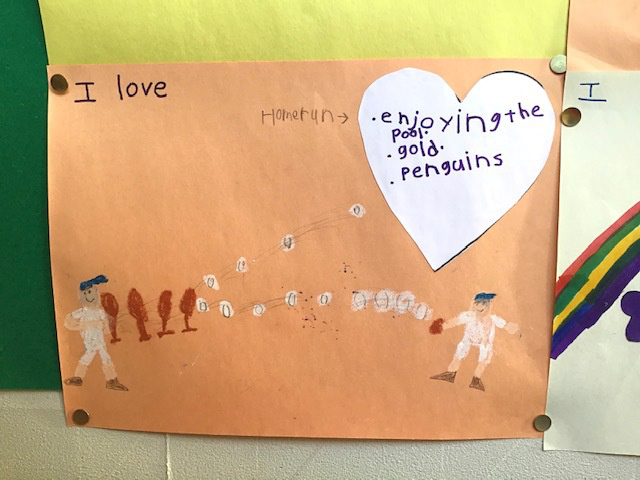 I love
Homerun →
• enjoying the
pool.
• gold.
• penguins
I